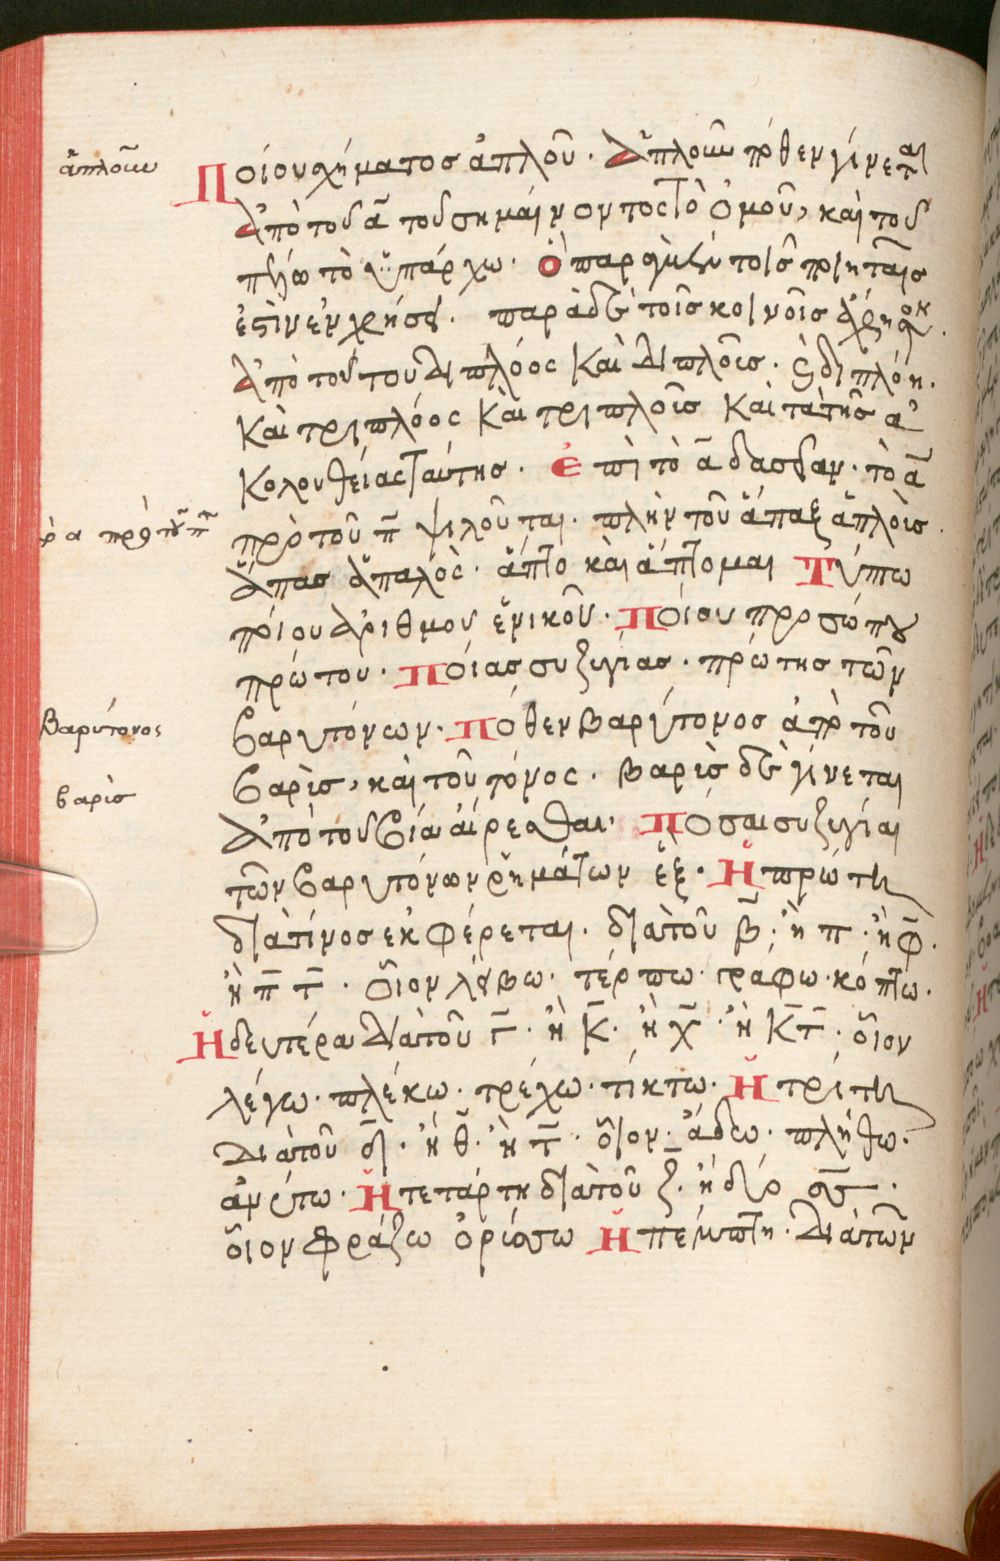 ἁπλοῦν
Ποίου σχήματος ἁπλοῦ. Ἁπλοῦν πόθεν γίνεται
Ἀπὸ τοῦ α̅ τοῦ σημαίνοντος τὸ ὁμοῦ, καὶ τοῦ
τὸ ὑπάρχω. Ὃ παρ τοῖς ποιηταῖς
ἐστὶν ἐν χρήσει. παρὰ δὲ τοῖς κοινοῖς
Ἀπὸ τούτου διπλόος καὶ διπλοῖς. διπλόη.
καὶ τριπλόος καὶ τριπλοῖς καὶ τὰ τῆς ἀ
κολουθείας ταύτης. ἐπὶ τὸ α̅ δασεῖαν. τὸ α̅
τὸ α πρὸ τοῦ π̅
πρὸ τοῦ π̅ ψιλοῦται. πλὴν τοῦ ἅπαξ ἁπλόις
ἅπας ἁπαλὸς. ἅπτο καὶ ἅπτομαι Τύπτω
ποίου ἀριθμοῦ ἑνικοῦ. Ποίου προσώπου
πρώτου. Ποίας συζυγίας. πρώτης τῶν
Βαρύτονος
βαρυτόνων. Πόθεν βαρύτονος ἀπὸ τοῦ
βαρὶς
βαρὶς, καὶ τοῦ τόνος. βαρὶς δὲ γίνεται
Ἀπὸ τοῦ βία αἴρεσθαι. Πόσαι συζυγίαι
τῶν βαρυτόνων ῥημάτων ἕξ. Ἡ πρώτη
διὰ τίνος ἐκφέρεται. διὰ τοῦ β̅. ἢ π. ἢ φ̅.
ἢ π̅ τ̅. οἷον λείβω. τέρπω. γράφω. κόπτω.
Ἡ δευτέρα διὰ τοῦ γ̅. ἢ κ̅. ἢ χ̅. ἢ κ̅τ̅. οἷον
λέγω. πλέκω. τρέχω. τίκτω. Ἡ τρίτη
διὰ τοῦ δ̅. ἢ θ̅. ἢ τ̅. οἷον. ᾄδω. πλήθω.
ἀνύτω. Ἡ τετάρτη διὰ τοῦ ζ̅. ἢ δύο σσ̅.
οἷον φράζω ὀρύσσω Ἡ πέμπτη. διὰ τῶν